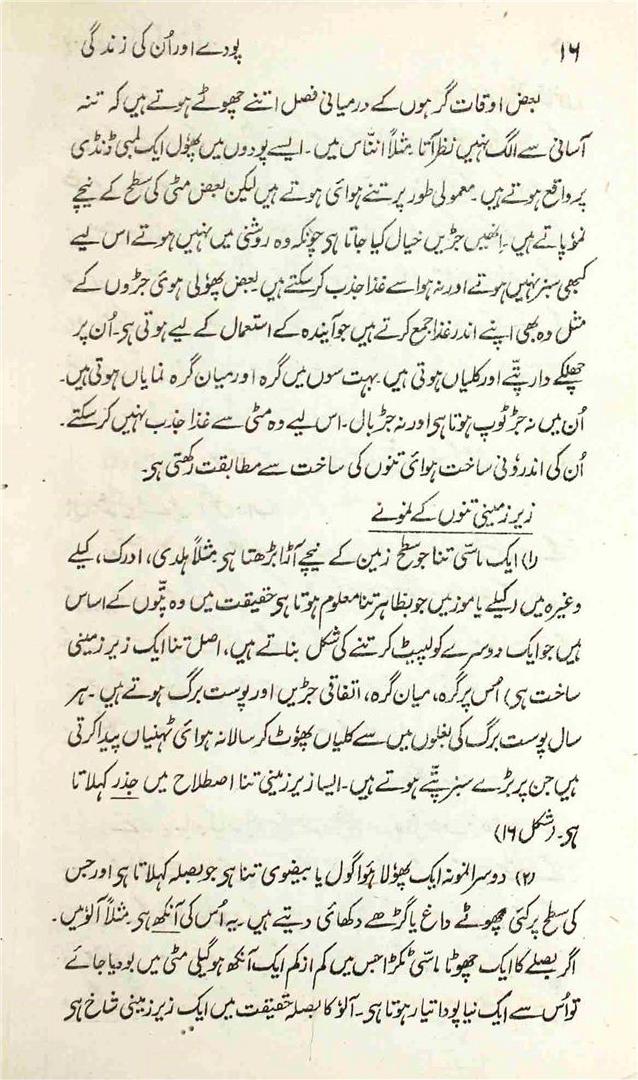 ۱۶
پودے اور اُن کی زندگی
بعض اوقات گرہوں کے درمیانی فصل اتنے چھوٹے ہوتے ہیں کہ تنہ
آسانی سے الگ نہیں نظر آتا مثلاً انناس میں۔ ایسے پودوں میں پھول ایک لمبی ڈنڈی
پر واقع ہوتے ہیں۔ معمولی طور پر تنے ہوائی ہوتے ہیں لیکن بعض مٹی کی سطح کے نیچے
نمو پاتے ہیں۔ انھیں جڑیں خیال کیا جاتا ہی چونکہ وہ روشنی میں نہیں ہوتے اس لیے
کبھی سبز نہیں ہوتے اور نہ ہوا سے غذا جذب کر سکتے ہیں۔ بعض پھولی ہوئی جڑوں کے
مثل وہ بھی اپنے اندر غذا جمع کرتے ہیں جو آیندہ کے استعمال کے لیے ہوتی ہی۔ اُن پر
چھلکے دار پتّے اور کلیاں ہوتی ہیں۔ بہت سوں میں گرہ اور میان گرہ نمایاں ہوتی ہیں۔
اُن میں نہ جڑ ٹوپ ہوتا ہی اور نہ جڑ بال۔ اس لیے وہ مٹی سے غذا جذب نہیں کر سکتے۔
اُن کی اندرونی ساخت ہوائی تنوں کی ساخت سے مطابقت رکھتی ہی۔
زیر زمینی تنوں کے نمونے
(۱) ایک ماسّی تنا جو سطح زمین کے نیچے آڑا بڑھتا ہی مثلاً ہلدی، ادرک، کیلے
وغیرہ میں (کیلے یا موز میں جو بظاہر تنا معلوم ہوتا ہی حقیقت میں وہ پتّوں کے اساس
ہیں جو ایک دوسرے کو لپیٹ کر تنے کی شکل بناتے ہیں، اصل تنا ایک زیر زمینی
ساخت ہی) اُس پر گرہ، میان گرہ، اتفاقی جڑیں اور پوست برگ ہوتے ہیں۔ ہر
سال پوست برگ کی بغلوں میں سے کلیاں پھوٹ کر سالانہ ہوائی ٹہنیاں پیدا کرتی
ہیں جن پر بڑے سبز پتّے ہوتے ہیں۔ ایسا زیر زمینی تنا اصطلاح میں جذر کہلاتا
ہی۔ (شکل ۱۶)
(۲) دوسرا نمونہ ایک پھولا ہوا گول یا بیضوی تنا ہی جو بصلہ کہلاتا ہی اور جس
کی سطح پر کئی چھوٹے داغ یا گڑھے دکھائی دیتے ہیں۔ یہ اُس کی آنکھ ہی مثلاً آلو میں۔
اگر بصلے کا ایک چھوٹا ماسّی ٹکڑا جس میں کم از کم ایک آنکھ ہو گیلی مٹی میں بو دیا جائے
تو اُس سے ایک نیا پودا تیار ہوتا ہی۔ آلو کا بصلہ حقیقت میں ایک زیر زمینی شاخ ہی